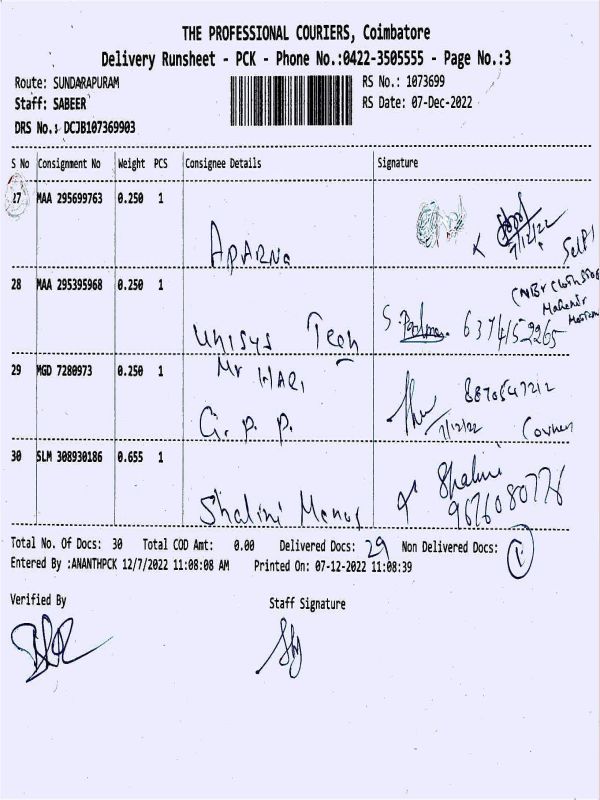 THE PROFESSIONAL COURIERS, Coimbatore
Delivery Runsheet - PCK - Phone No.:0422-3505555 - Page No.:3
Route: SUNDARAPURAM
RS No.: 1073699
Staff: SABEER
RS Date: 07-Dec-2022
DRS No.: DCJB107369903
S No Consignment No Weight PCS Consignee Details Signature
27 MAA 295699763 0.250 1
7/12/22
Self
APARNA
28 MAA 295395968 0.250 1
(NBr Cloth
S. 6374152265
Unisys Tech
29 MGD 7280973 0.250 1
Mr HARI
8870547212
G. P. P.
7/12/22
30 SLM 308930186 0.655 1
Shalini
9676080776
Shalini Menos
Total No. Of Docs: 30 Total COD Amt: 0.00 Delivered Docs: 29 Non Delivered Docs: 1
Entered By :ANANTHPCK 12/7/2022 11:08:08 AM Printed On: 07-12-2022 11:08:39
Verified By
Staff Signature